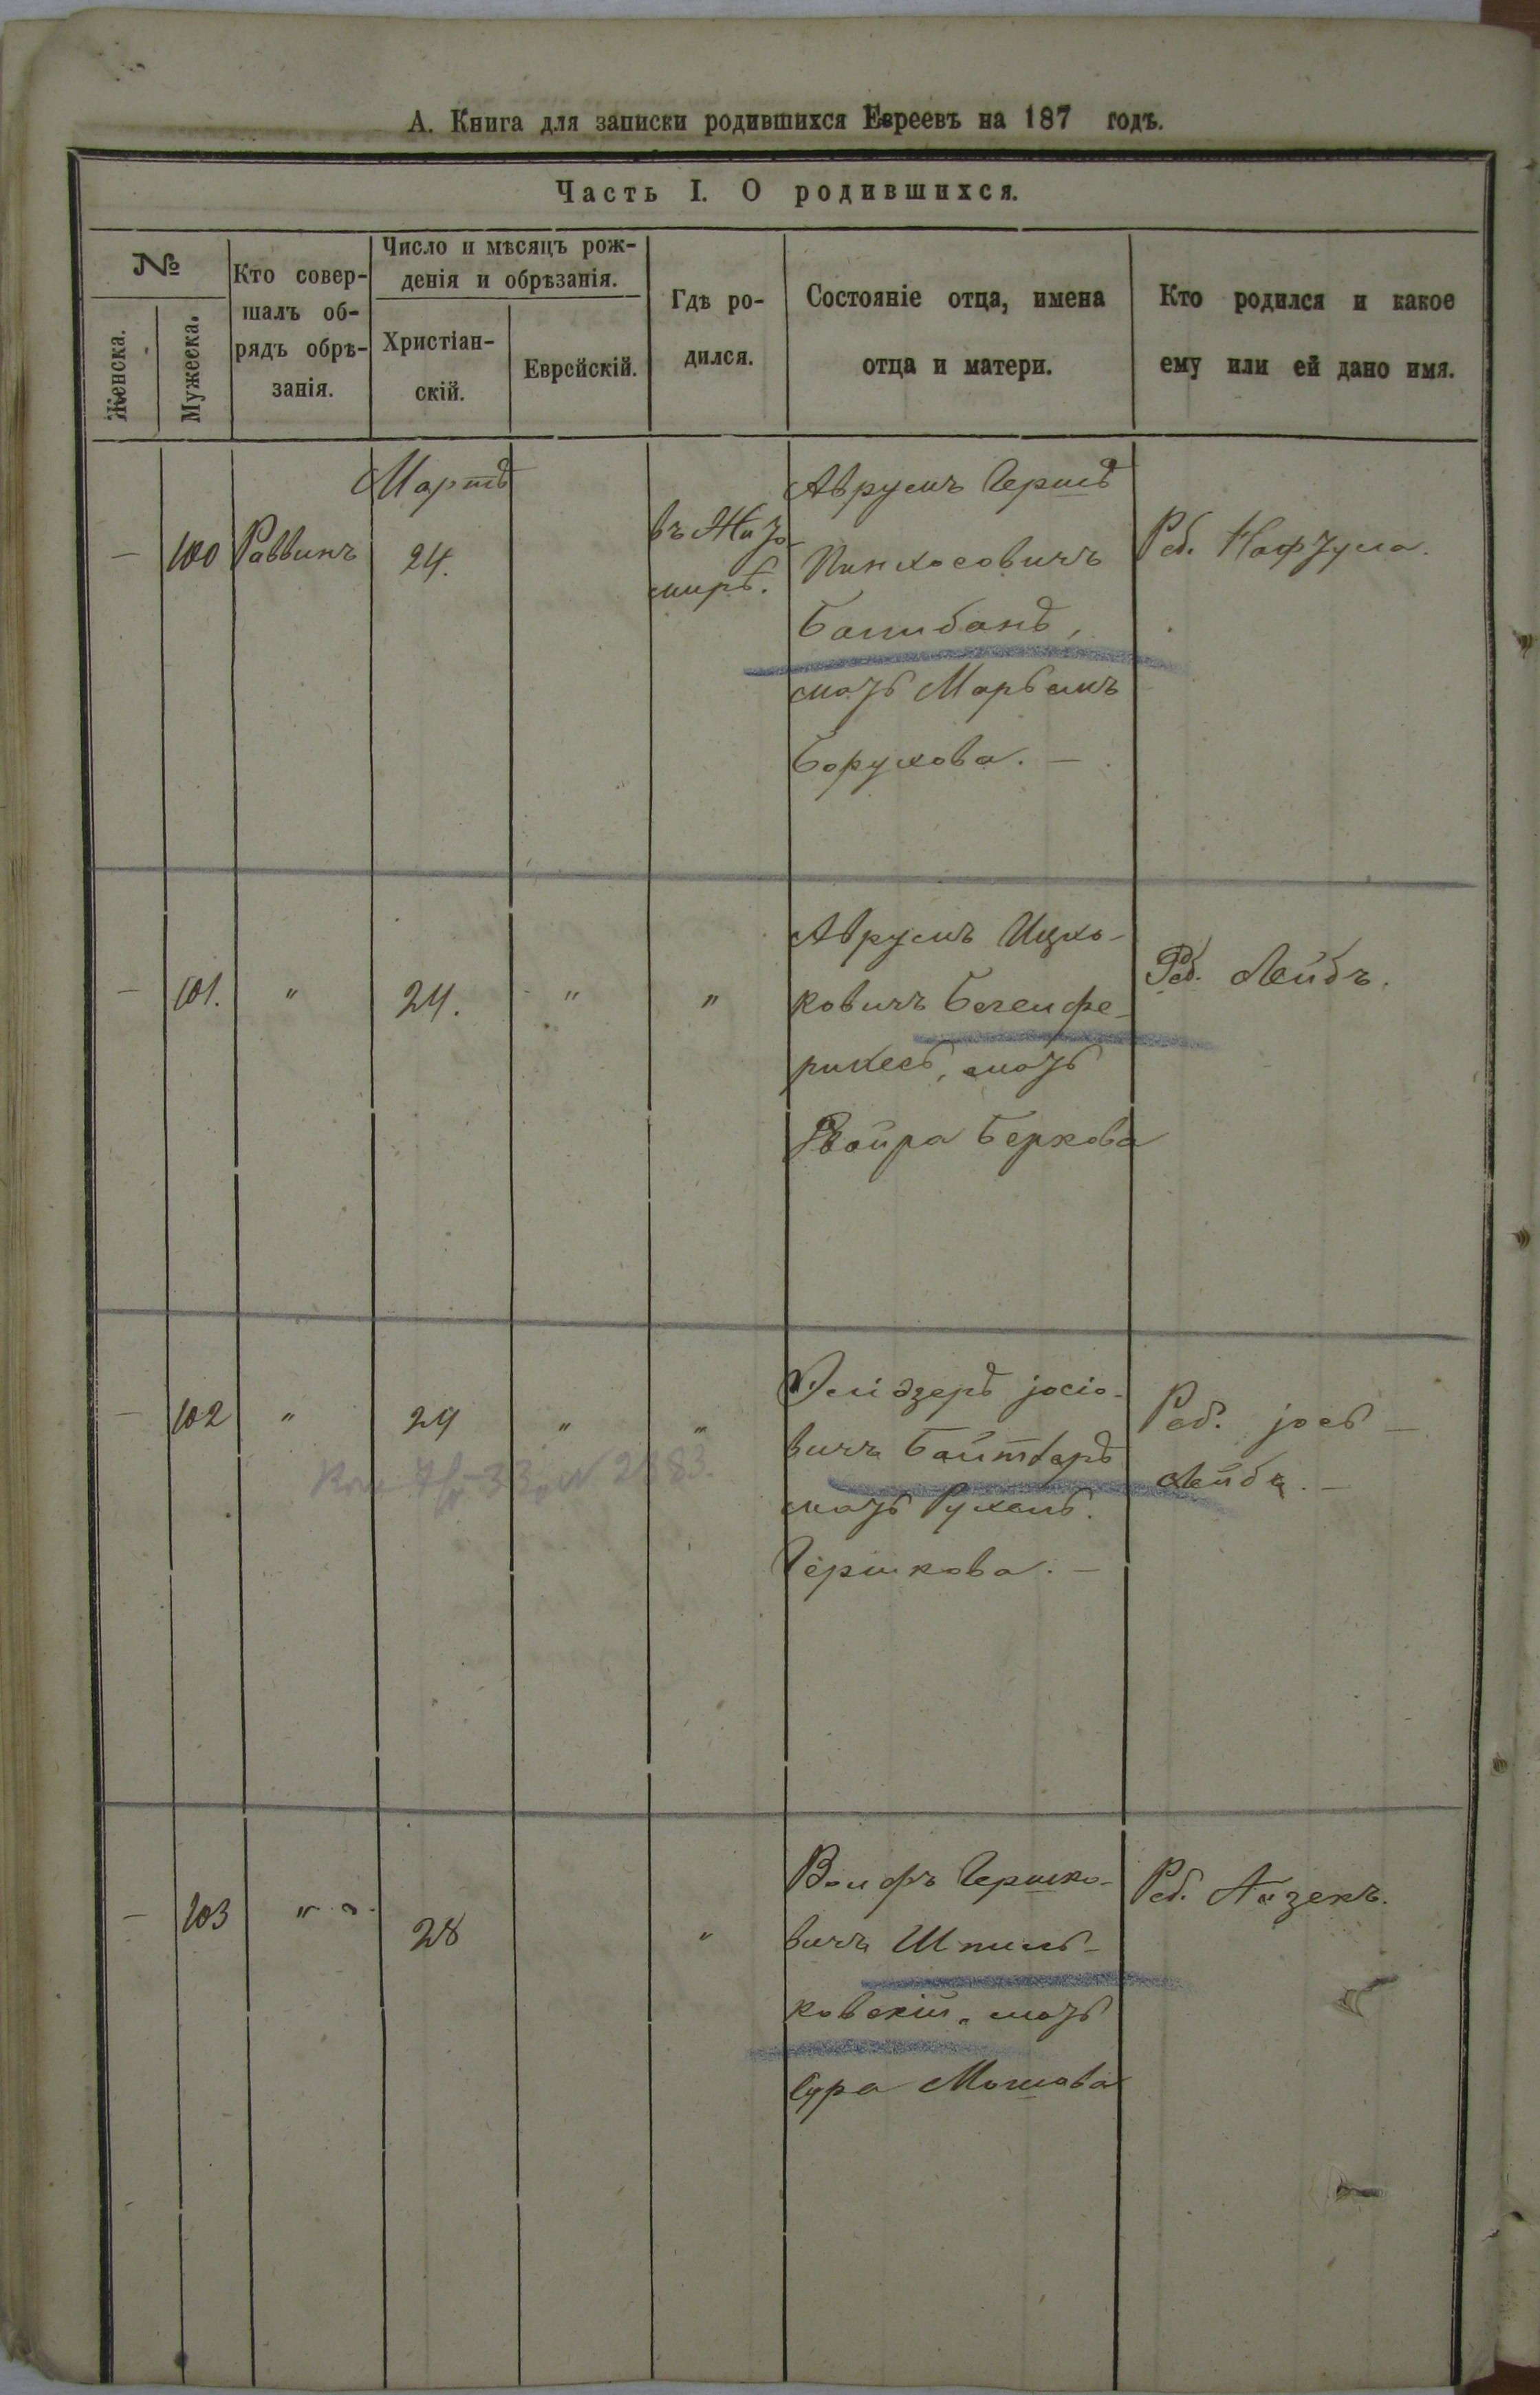 А. Книга для записки родившихся Евреевъ на 187 годъ.
Часть I. О родившихся.
№
Женска.
Мужеска.
Кто совер-
шалъ об-
рядъ обрѣ-
занія.
Число и мѣсяцъ рож-
денія и обрѣзанія.
Христіан-
скій.
Еврейскій.
Гдѣ ро-
дился.
Состояніе отца, имена
отца и матери.
Кто родился и какое
ему или ей дано имя.
Мартъ
— 100 Раввинъ 24.
въ Жито-
мирѣ.
Аврумъ Гершъ
Пинхосовичъ
мать Марьемъ
Борухова. —
Реб. Нафтула.
— 101. " 24. " "
Аврумъ Ицко-
ковичъ Бегемфе-
рихесъ, мать
Двойра Беркова
Реб. Лейбъ.
— 102 " 29 " "
Еліэзеръ Јосіо-
вичъ Байтбаръ
мать Рухель
Гершкова. —
Реб. Јось —
Лейбъ. —
— 103 " 28 "
Вольфъ Гершко-
вичъ Шпиль-
ковскій, мать
Сура Мошкова
Реб. Айзекъ.